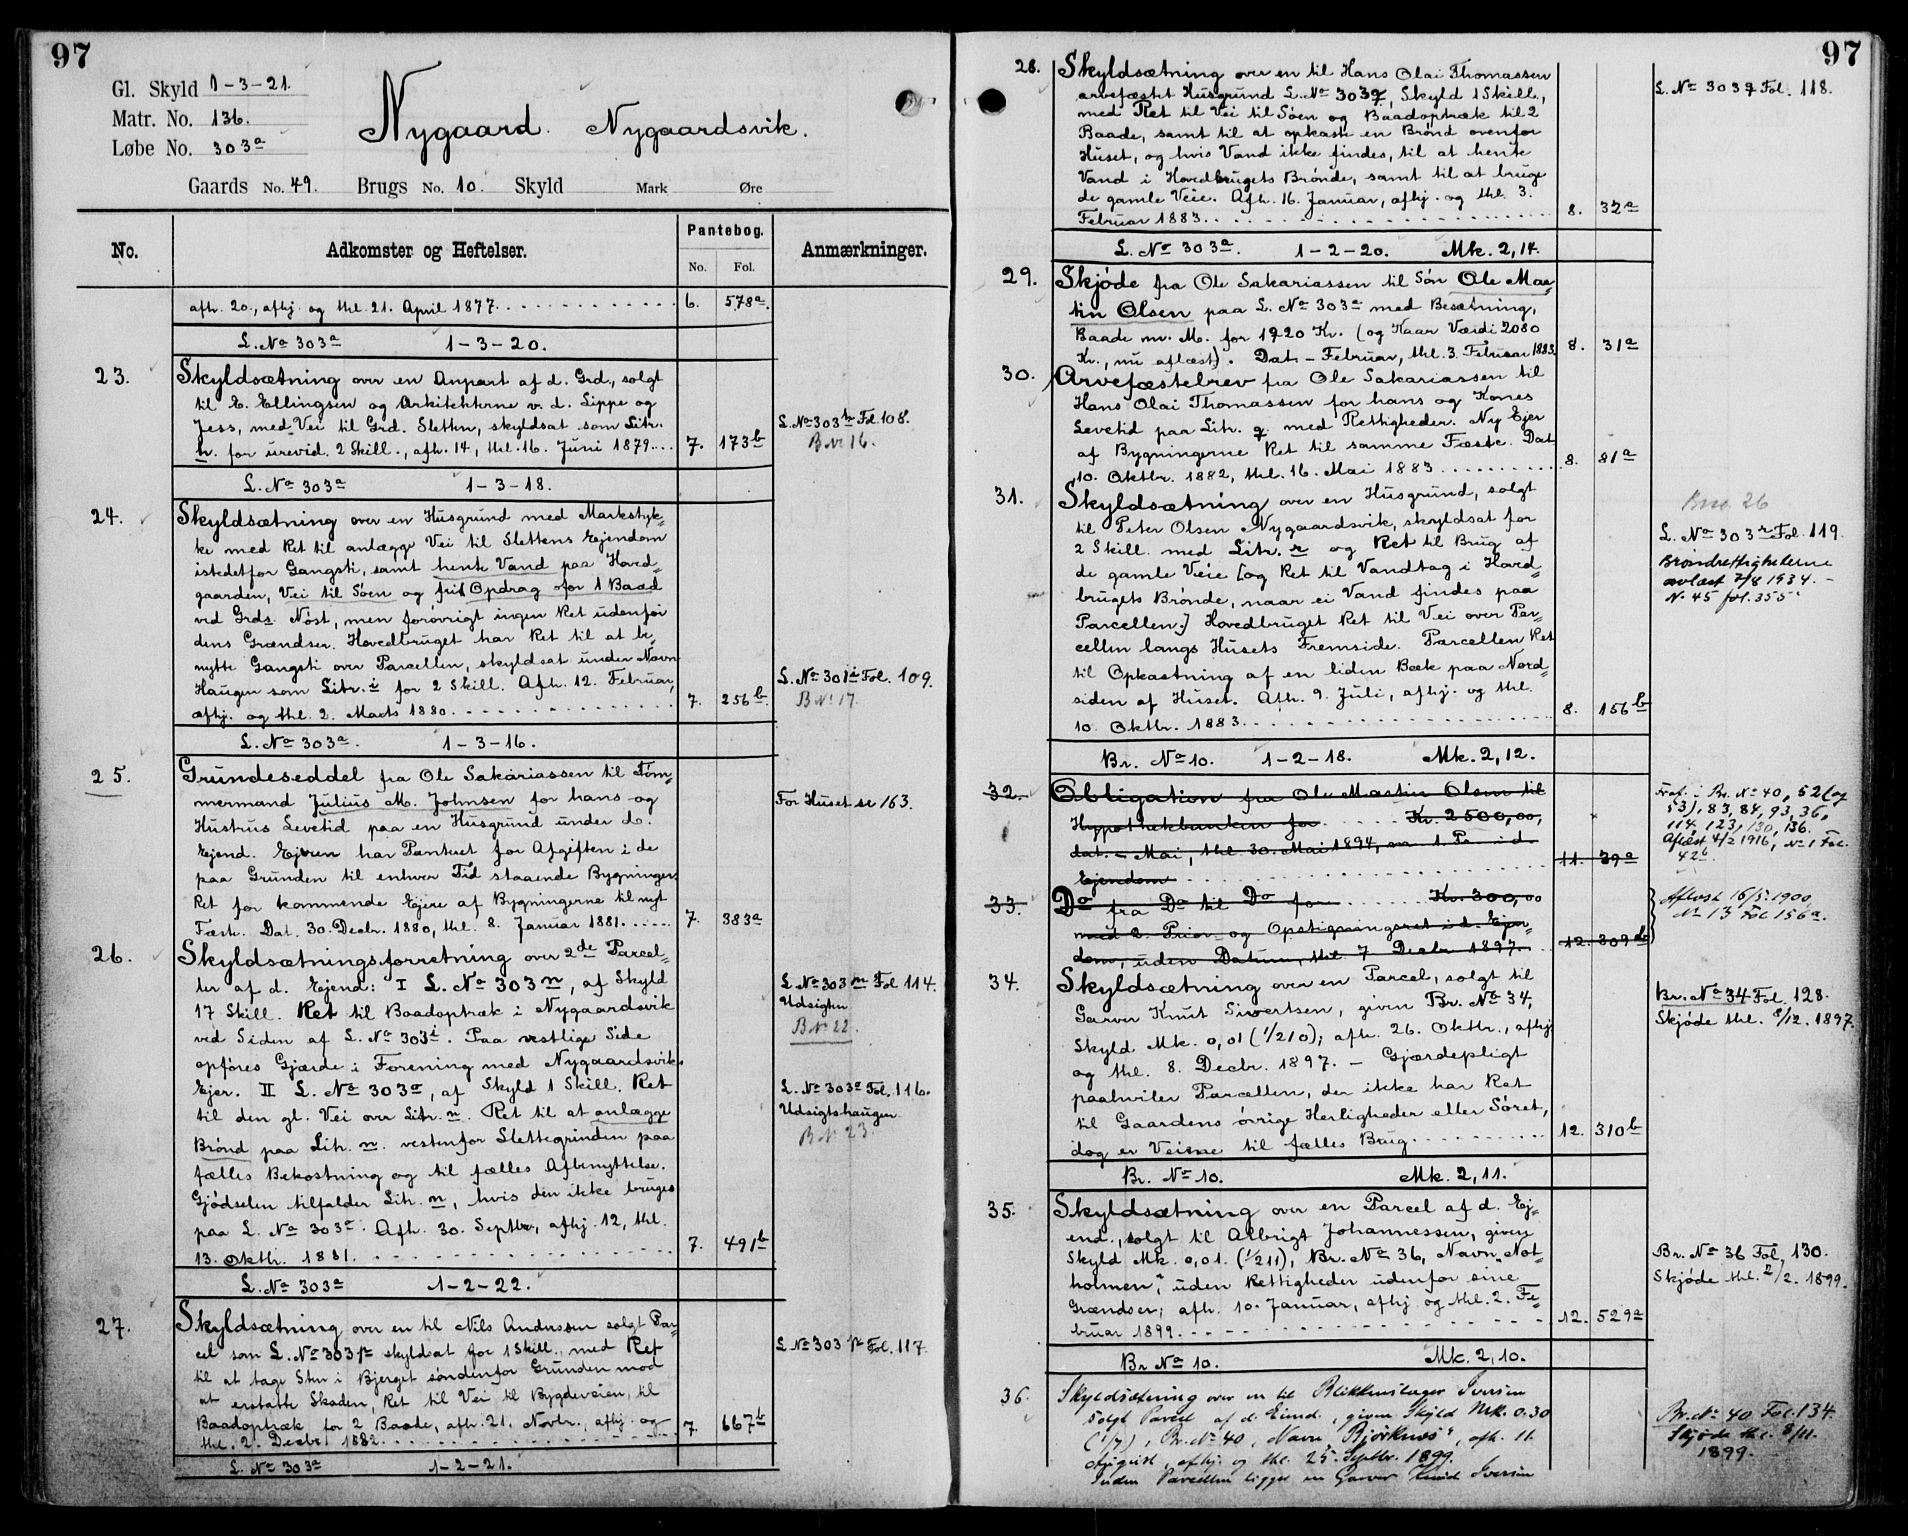 97
Gl. Skyld 1-3-21.
Matr. No. 136.
Løbe No. 303a
Nygaard. Nygaardsvik.
Gaards No. 49. Brugs No. 10. Skyld Mark Øre
No. Adkomster og Heftelser. Pantebog. Anmærkninger.
No. Fol.
afh. 20., afhj. og thl. 21. April 1877. 6. 578a.
L. No 303a 1-3-20.
23. Skyldsætning over en Anpart af d. Grd., solgt
til E. Ellingsen og Arkitekterne v. d. Lippe og
Jess, med Vei til Grd. Sletten, skyldsat som Litr.
h. for urevid. 2 Skill., afh. 14, thl. 16. Juni 1879. 7. 173b
L. No 303h Fol 108.
B No 16.
L. No 303a 1-3-18.
24. Skyldsætning over en Husgrund med Markstyk-
ke med Ret til anlægge Vei til Slettens Ejendom
istedetfor Gangsti, samt hente Vand paa Hoved-
gaarden, Vei til Søen og frit Opdrag for 1 Baad
ved Grds. Nøst, men forøvrigt ingen Ret udenfor
dens Grændser. Hovedbruget har Ret til at be-
nytte Gangsti over Parcellen, skyldsat under Navn
Haugen som Litr. i for 2 Skill. Afh. 12. Februar,
afhj. og thl. 2. Marts 1880. 7. 256b.
L. No 301i Fol. 109.
B No 17.
L. No 303a. 1-3-16.
25. Grundeseddel fra Ole Sakariassen til Tøm-
mermand Julius M. Johnsen for hans og
Hustrus Levetid paa en Husgrund under d.
Ejend. Ejeren har Panteret for Afgiften i de
paa Grunden til enhver Tid staaende Bygninger.
Ret for kommende Ejere af Bygningerne til nyt
Fæste. Dat. 30. Decbr. 1880, thl. 8. Januar 1881. 7. 383a
For Huset se 163.
26. Skyldsætningsforretning over 2de Parcel-
ler af d. Ejend: I L. No 303n, af Skyld
17 Skill. Ret til Baadoptræk i Nygaardsvik
ved Siden af L. No 303i. Paa vestlige Side
opføres Gjærde i Forening med Nygaardsviks
Ejer. II L. No 303o, af Skyld 1 Skill. Ret
til den gl. Vei over Litr. n. Ret til at anlægge
Brønd paa Litr. n. vestenfor Slettegrinden paa
fælles Bekostning og til fælles Afbenyttelse.
Gjødselen tilfalder Litr. n, hvis den ikke bruges
paa L. No 303o. Afh. 30. Septbr., afhj. 12, thl.
13. Oktbr. 1881. 7. 491b
L. No 303n Fol 114.
Udsigten
B No 22.
L. No 303o Fol. 116.
Udsigtshaugen
B No 23.
L. No 303a 1-2-22.
27. Skyldsætning over en til Nils Anderssen solgt Par-
cel som L. No 303p skyldsat for 1 Skill., med Ret
til at tage Sten i Bjerget søndenfor Grunden mod
at erstatte Skaden, Ret til Vei til Bygdeveien, til
Baadoptræk for 2 Baade, afh. 21. Novbr., afhj. og
thl. 2. Decbr. 1882. 7. 667b
L No 303p Fol. 117.
L. No 303a 1-2-21.
97
28. Skyldsætning over en til Hans Olai Thomassen
arvefæstet Husgrund L. No 303q, Skyld 1 Skill.,
med Ret til Vei til Søen og Baadoptræk til 2
Baade, samt til at opkaste en Brønd ovenfor
Huset, og hvis Vand ikke findes, til at hente
Vand i Hovedbrugets Brønde, samt til at bruge
de gamle Veie. Afh. 16. Januar, afhj. og thl. 3.
Februar 1883. 8. 32a
L. No 303q Fol. 118.
L. No 303a. 1-2-20. Mk. 2,14.
29. Skjøde fra Ole Sakariassen til Søn Ole Mar-
tin Olsen paa L. No 303a med Besætning,
Baade m. M. for 1920 Kr. (og Kaar Værdi 2080
Kr., nu aflæst). Dat. - Februar, thl. 3. Februar 1883. 8. 31a
30. Arvefæstebrev fra Ole Sakariassen til
Hans Olai Thomassen for hans og Kones
Levetid paa Litr. q. med Rettigheder. Ny Ejer
af Bygningerne Ret til samme Fæste. Dat.
10. Oktbr. 1882, thl. 16. Mai 1883. 8. 81a
31. Skyldsætning over en Husgrund, solgt
til Peter Olsen Nygaardsvik, skyldsat for
2 Skill. med Litr. r og Ret til Brug af
de gamle Veie [og Ret til Vandtag i Hoved-
brugets Brønde, naar ei Vand findes paa
Parcellen.] Hovedbruget Ret til Vei over Par-
cellen langs Husets Fremside. Parcellen Ret
til Opkastning af en liden Bæk paa Nord-
siden af Huset. Afh. 9. Juli, afhj. og thl.
10. Oktbr. 1883. 8. 156b
Bno 26
L. No 303r Fol. 119.
Brøndrettighetene
avlæst 7/8 1934. -
N. 45 fol. 355.
Br. No 10. 1-2-18. Mk. 2,12.
32. Obligation fra Ole Martin Olsen til
Hypothekbanken for Kr. 2500,00,
dat. - Mai, thl. 30. Mai 1894, m 1. Pr i d.
Ejendom 11. 39a
Fraf. i Br. No 40, 52 (og
53), 83, 84, 93, 36,
114, 123, 130, 136.
Aflæst 4/2 1916, No 1 Fol.
42b.
33. Do fra Do til Do for Kr. 300,00
med 2. Prior. og Opstigningsret i d. Ejen-
dom, uden Datum, thl. 7 Decbr 1897. 12. 309b
Aflæst 16/5 1900,
No 13 Fol 156a.
34. Skyldsætning over en Parcel, solgt til
Garver Knut Sivertsen, given Br. No 34,
Skyld Mk. 0,01 (1/210); afh. 26. Oktbr., afhj
og thl. 8. Decbr. 1897. - Gjærdepligt
paahviler Parcellen, der ikke har Ret
til Gaardens øvrige Herligheder eller Søret,
dog er Veiene til fælles Brug. 12. 310b
Br. No 34 Fol. 128.
Skjøde thl. 8/12. 1897.
Br. No 10. Mk. 2,11.
35. Skyldsætning over en Parcel af d. Ej-
end., solgt til Albrigt Johannessen, given
Skyld Mk. 0,01. (1/211), Br. No 36, Navn "Not-
holmen", uden Rettigheder udenfor sine
Grændser; afh. 10. Januar, afhj og thl. 2. Fe-
bruar 1899. 12. 529a
Br. No 36 Fol. 130.
Skjøde thl. 2/2. 1899.
Br No 10. Mk. 2,10.
36. Skyldsætning over en til Blikkenslager Iversen
solgt Parcel af d. Eiend., given Skyld Mk. 0.30
(1/7), Br. No 40, Navn "Bjørknes", afh. 11.
August, afhj. og thl. 25. Septbr. 1899.
Inden Parcellen ligger en Garver Knud Iversen
Br. No 40 Fol. 134.
Skjøde thl. 8/11.
1899.